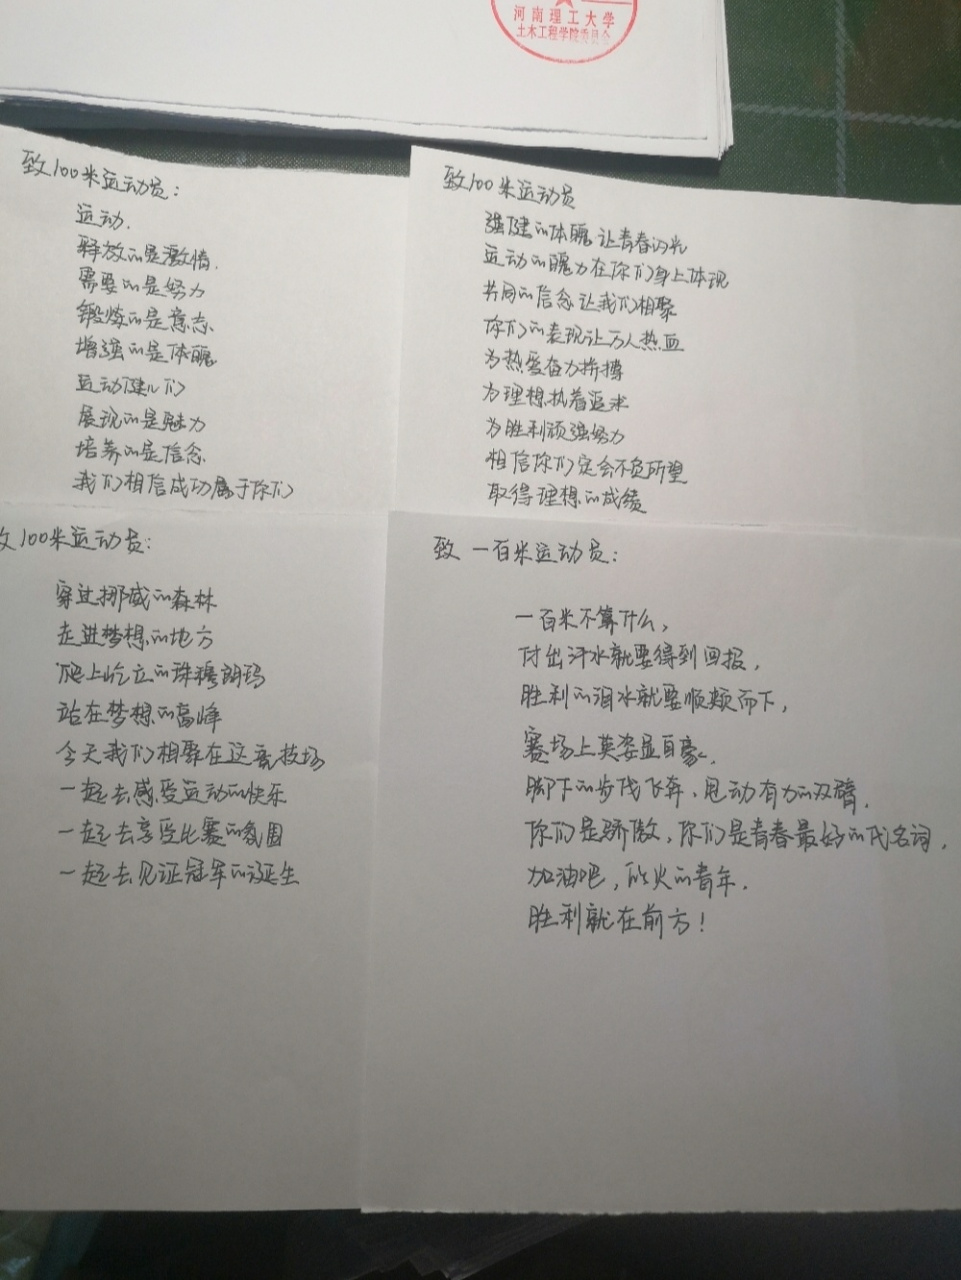 河南理工大学
土木工程学院委员会
致100米运动员：
运动.
释放的是激情.
需要的是努力
锻炼的是意志.
增强的是体魄
运动健儿们
展现的是魅力
培养的是信念.
我们相信成功属于你们
致100米运动员
强健的体魄让青春闪光
运动的魄力在你们身上体现
共同的信念让我们相聚
你们的表现让万人热血
为热爱奋力拼搏
为理想执着追求
为胜利顽强努力
相信你们定会不负所望
取得理想的成绩
致100米运动员：
穿过挪威的森林
走进梦想的地方
爬上屹立的珠穆朗玛
站在梦想的高峰
今天我们相聚在这竞技场
一起去感受运动的快乐
一起去享受比赛的氛围
一起去见证冠军的诞生
致 一百米运动员：
一百米不算什么，
付出汗水就要得到回报，
胜利的泪水就要顺颊而下，
赛场上英姿显自豪.
脚下的步伐飞奔、甩动有力的双臂.
你们是骄傲，你们是青春最好的代名词.
加油吧，似火的青年.
胜利就在前方！